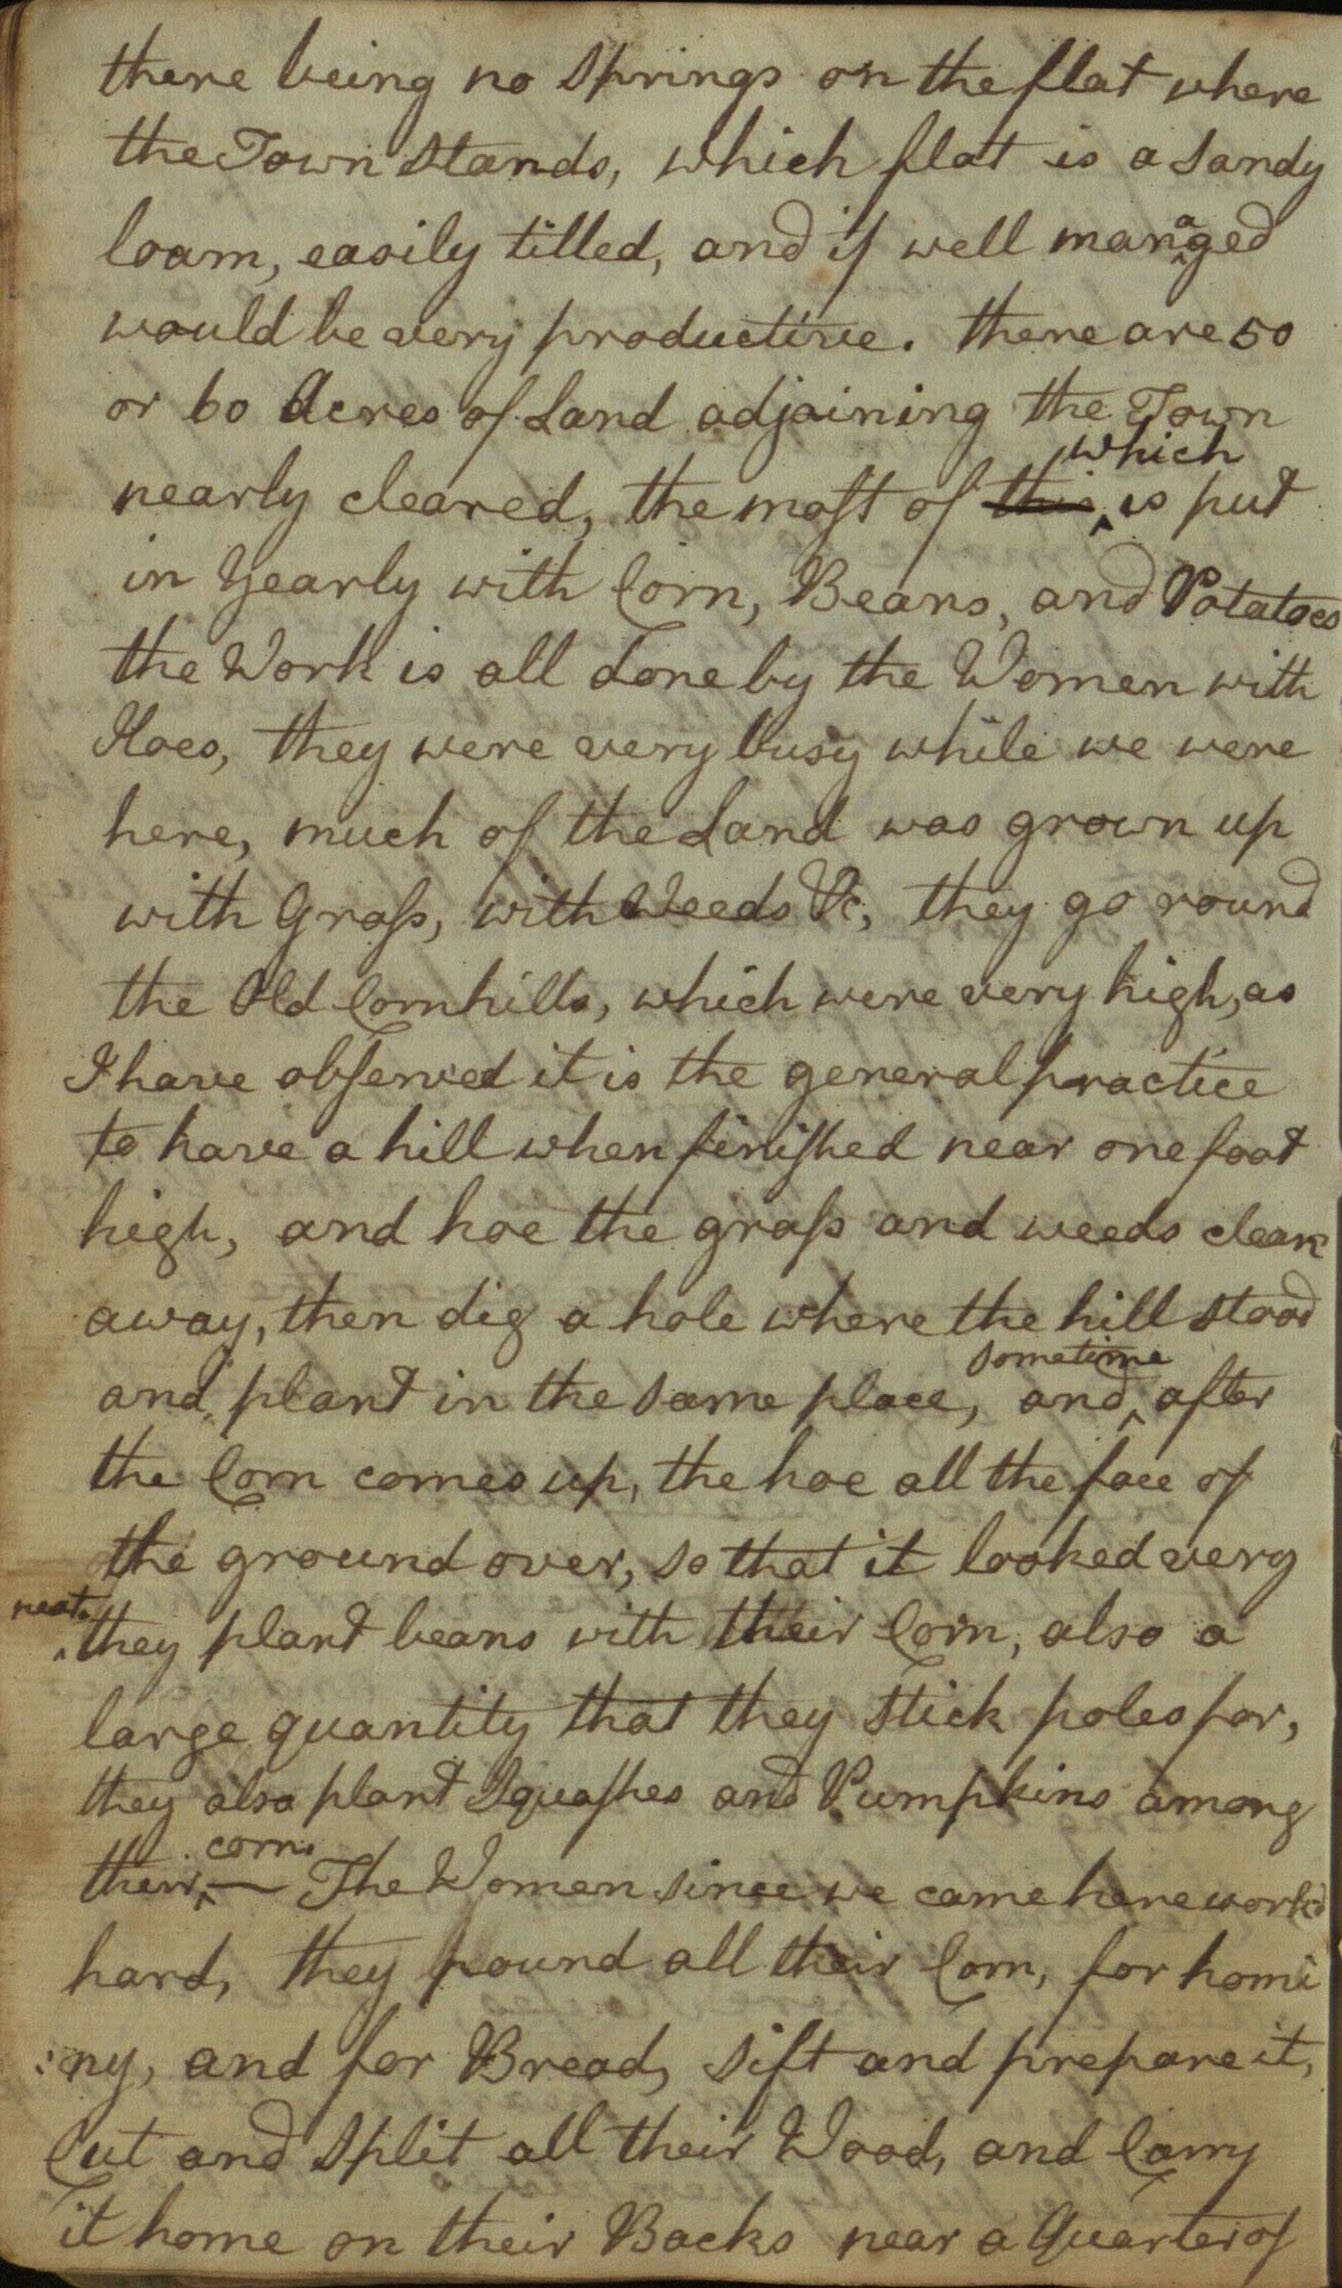 there being no Springs on the flat where
the Town Stands, which flat is a Sandy
loam, easily tilled, and if well managed
would be very productive. there are 50
or 60 Acres of Land adjoining the Town
which
nearly cleared, the most of this is put
in Yearly with Corn, Beans, and Potatoes
the Work is all done by the Women with
Hoes, they were very busy while we were
here, much of the Land was grown up
with Grass, with Weeds &c, they go round
the Old Cornhills, which were very high, as
I have observed it is the general practice
to have a hill when finished near one foot
high, and hoe the grass and weeds clean
away, then dig a hole where the hill stood
sometime
and plant in the same place, and after
the Corn comes up, the hoe all the face of
the ground over, so that it looked very
neat.
they plant beans with their Corn, also a
large quantity that they Stick poles for,
they also plant Squashes and Pumpkins among
corn.
their — The Women since we came here work'd
hard, they pound all their Corn, for homi
:ny, and for Bread, sift and prepare it,
Cut and Split all their Wood, and Carry
it home on their Backs near a Quarter of